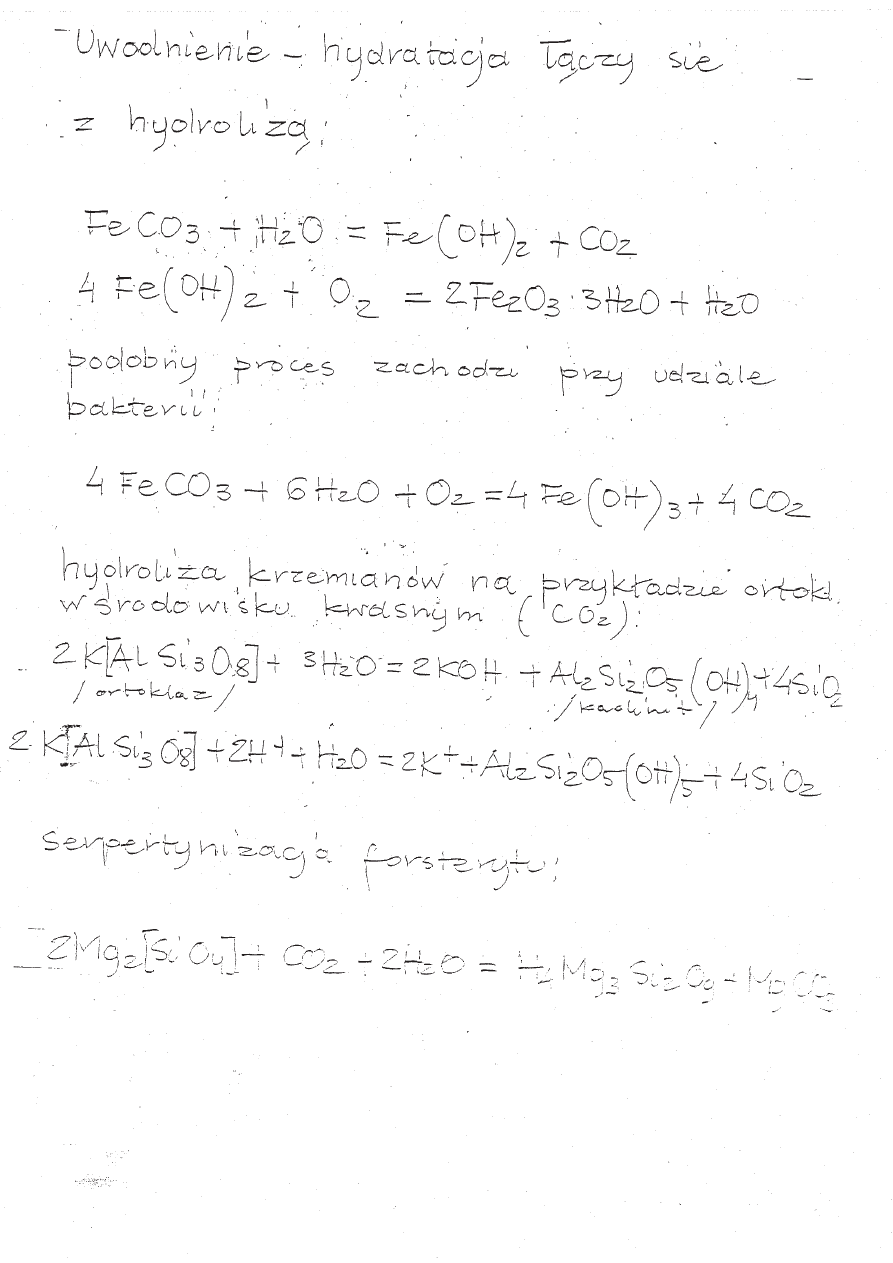 Uwodnienie - hydratacja łączy sie
z hydrolizą:
FeCO3 + H2O = Fe(OH)2 + CO2
4 Fe(OH)2 + O2 = 2Fe2O3·3H2O + H2O
podobny proces zachodzi przy udziale
bakterii:
4 FeCO3 + 6H2O + O2 = 4 Fe(OH)3 + 4 CO2
hydroliza krzemianów na przykładzie ortokl.
w środowisku kwaśnym (CO2):
2 K[AlSi3O8] + 3H2O = 2KOH + Al2Si2O5(OH)4 + 4SiO2
/ortoklaz/ /kaolinit/
2 K[AlSi3O8] + 2H+ + H2O = 2K+ + Al2Si2O5(OH)5 + 4SiO2
Serpertynizacja forsterytu:
2Mg2[SiO4] + CO2 + 2H2O = H4Mg3Si2O9 + MgCO3